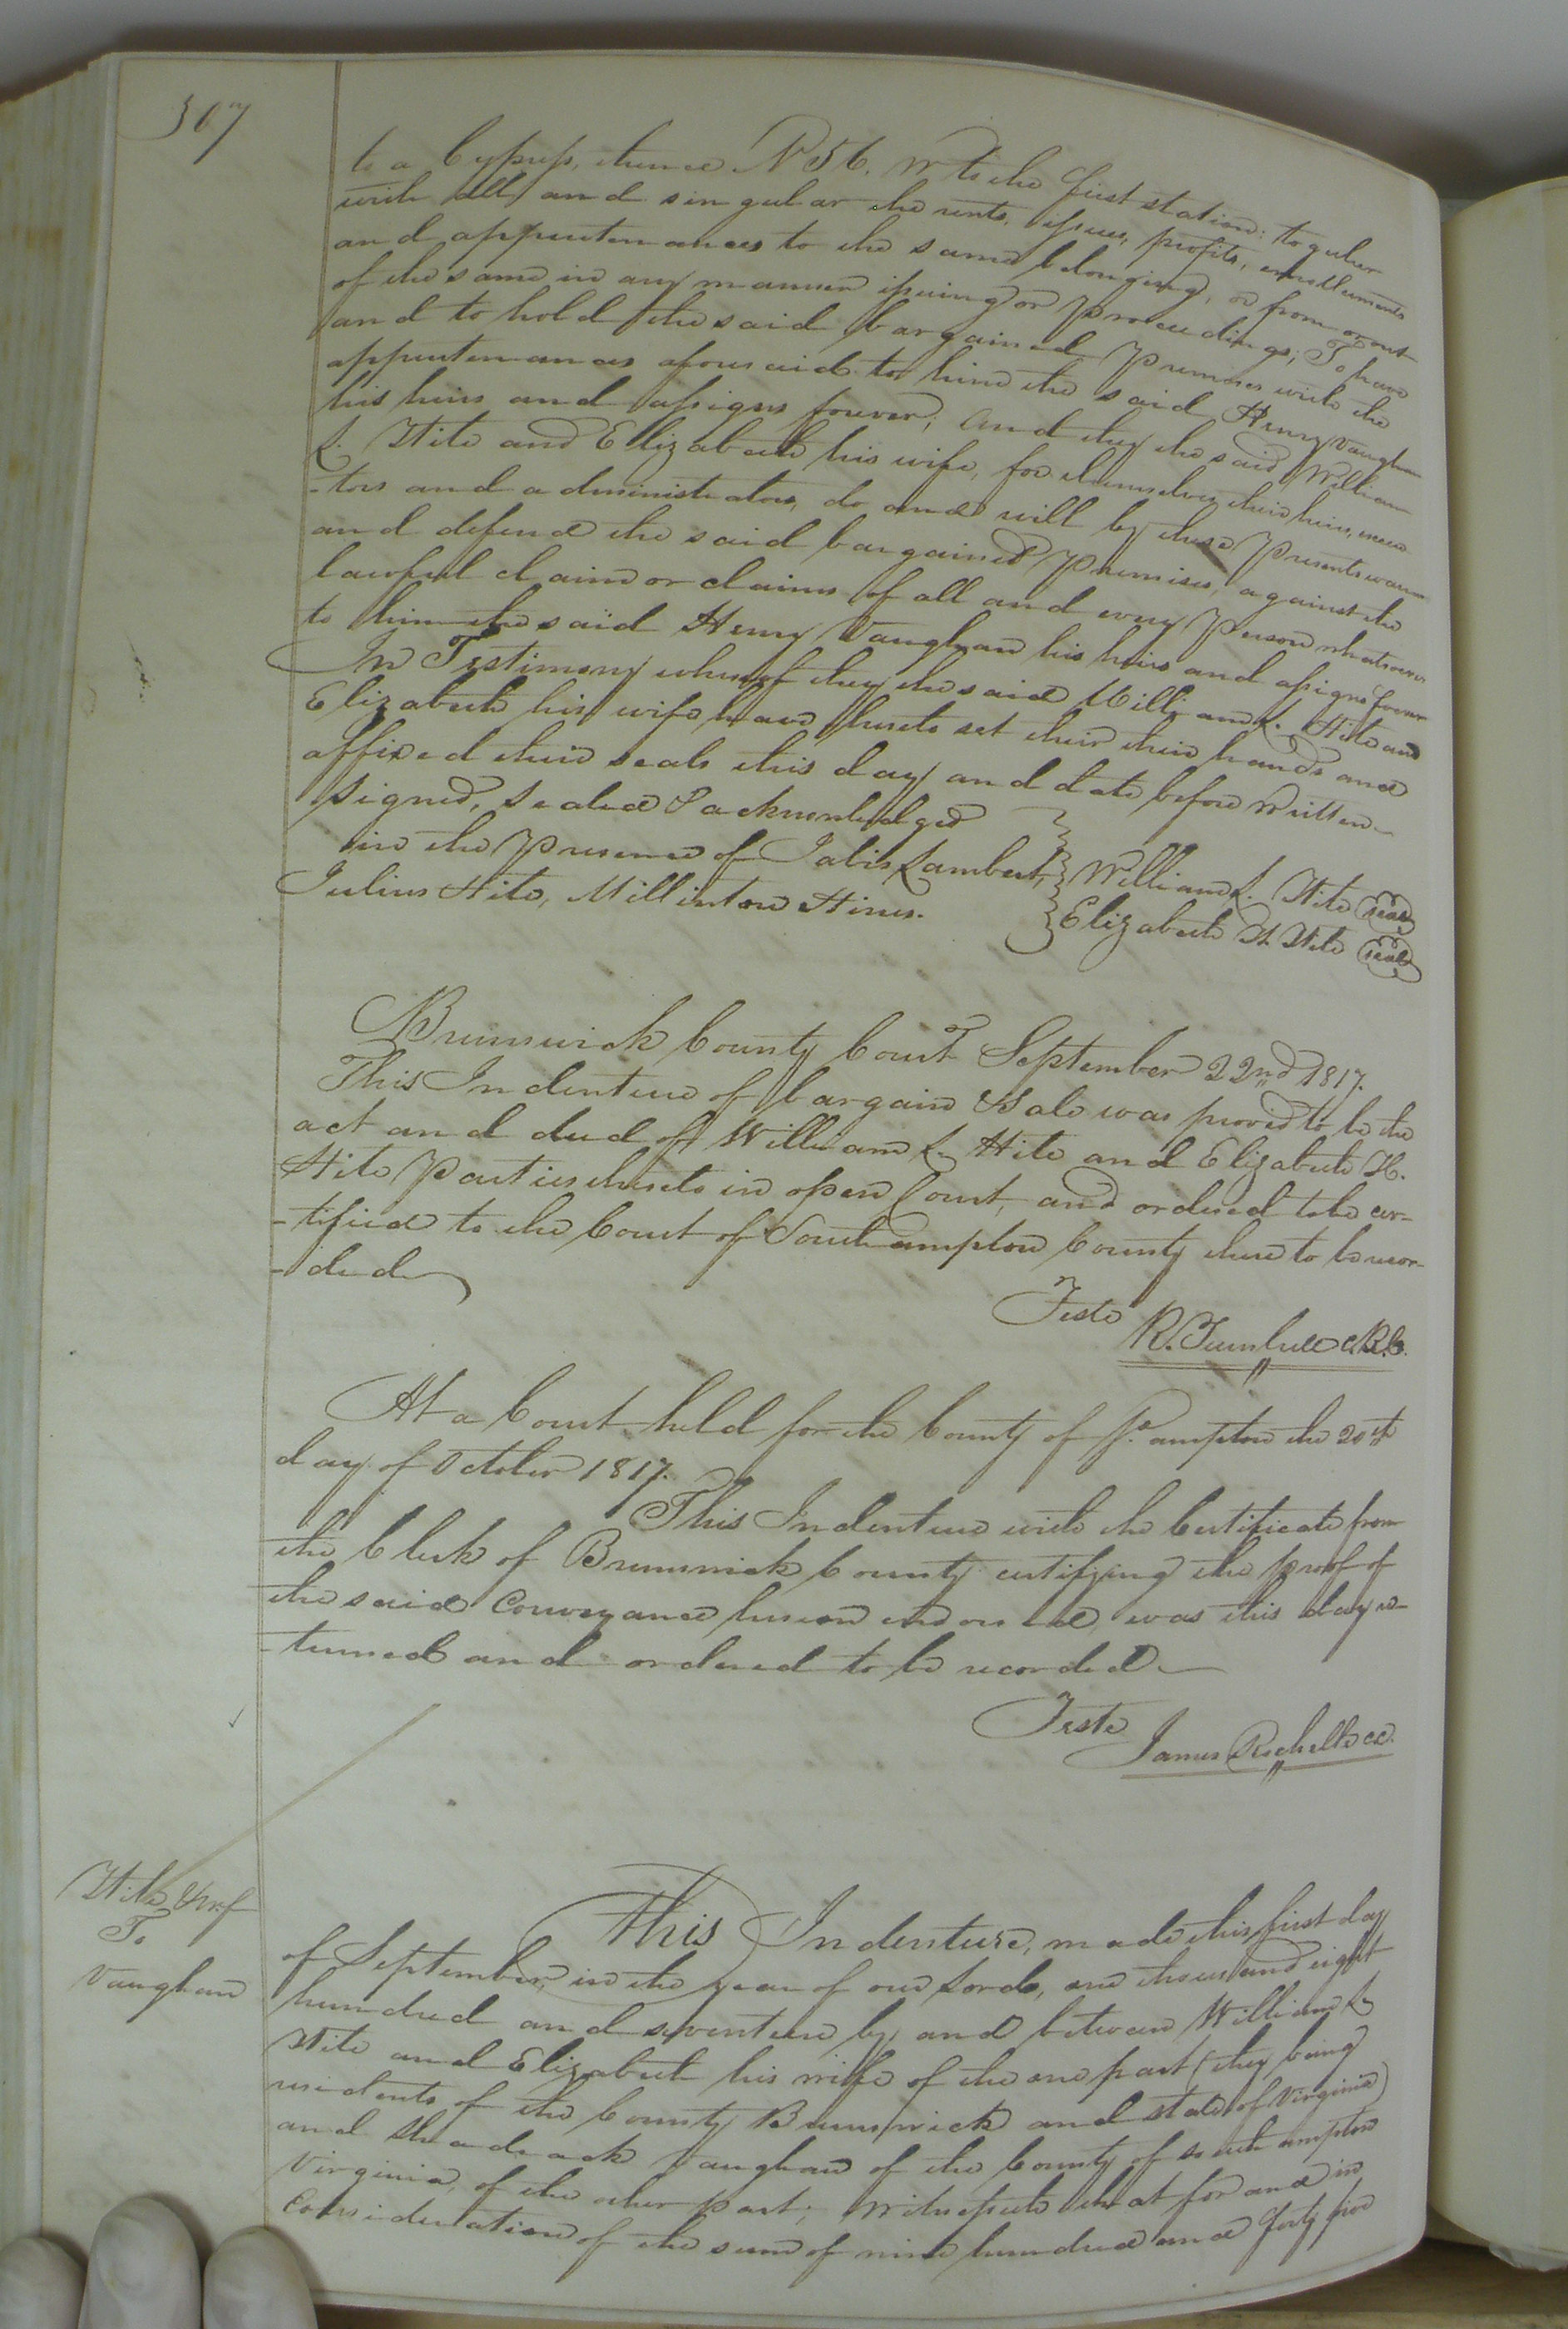 307
to a Cypress, thence N 56. W to the first station: together
with all and singular the rents, issues, profits, emolluments
and appurtenances to the same belonging, or from or out
of the same in any manner issuing or proceedings; To have
and to hold the said bargained premises with the
appurtenances aforesaid to him the said Henry Vaughan
his heirs and assigns forever; And they the said William
L. Hite and Elizabeth his wife, for themselves their heirs, execu
-tors and administrators, do and will by these presents warr
and defend the said bargained premises, against the
lawful claim or claims of all and every person whatsoever
to him the said Henry Vaughan his heirs and assigns forever
In Testimony whereof they the said William L. Hite and
Elizabeth his wife have hereto set their their hands and
affixed their seals this day and date before written
Signed, Sealed & acknowledged
in the presence of Jabis Lambert,
Julius Hite, Millinton Hines.
William L. Hite seal
Elizabeth H. Hite seal
Brunswick County Court September 22nd 1817.
This Indenture of bargain & Sale was proved to be the
act and deed of William L. Hite and Elizabeth H.
Hite parties thereto in open Court, and ordered to be cer-
-tified to the Court of Southampton County there to be recor-
-ded
Teste
R. Turnbull C.B.C.
At a Court held for the County of So. ampton the 20th
day of October 1817.
This Indenture with the Certificate from
the Clerk of Brunswick County certifying the proof of
the said Conveyance hereon endorsed, was this day re-
-turned and ordered to be recorded
Teste
James Rochelle cc.
Hite & wf
To
Vaughan
This Indenture, made this first day
of September, in the year of our Lord, one thousand eight
hundred and seventeen by and between William L
Hite and Elizabeth his wife of the one part (they being
residents of the County Brunswick and state of Virginia)
and Shadrack Vaughan of the County of Southampton
Virginia, of the other part; Witnesseth that for and in
Consideration of the sum of nine hundred and forty five